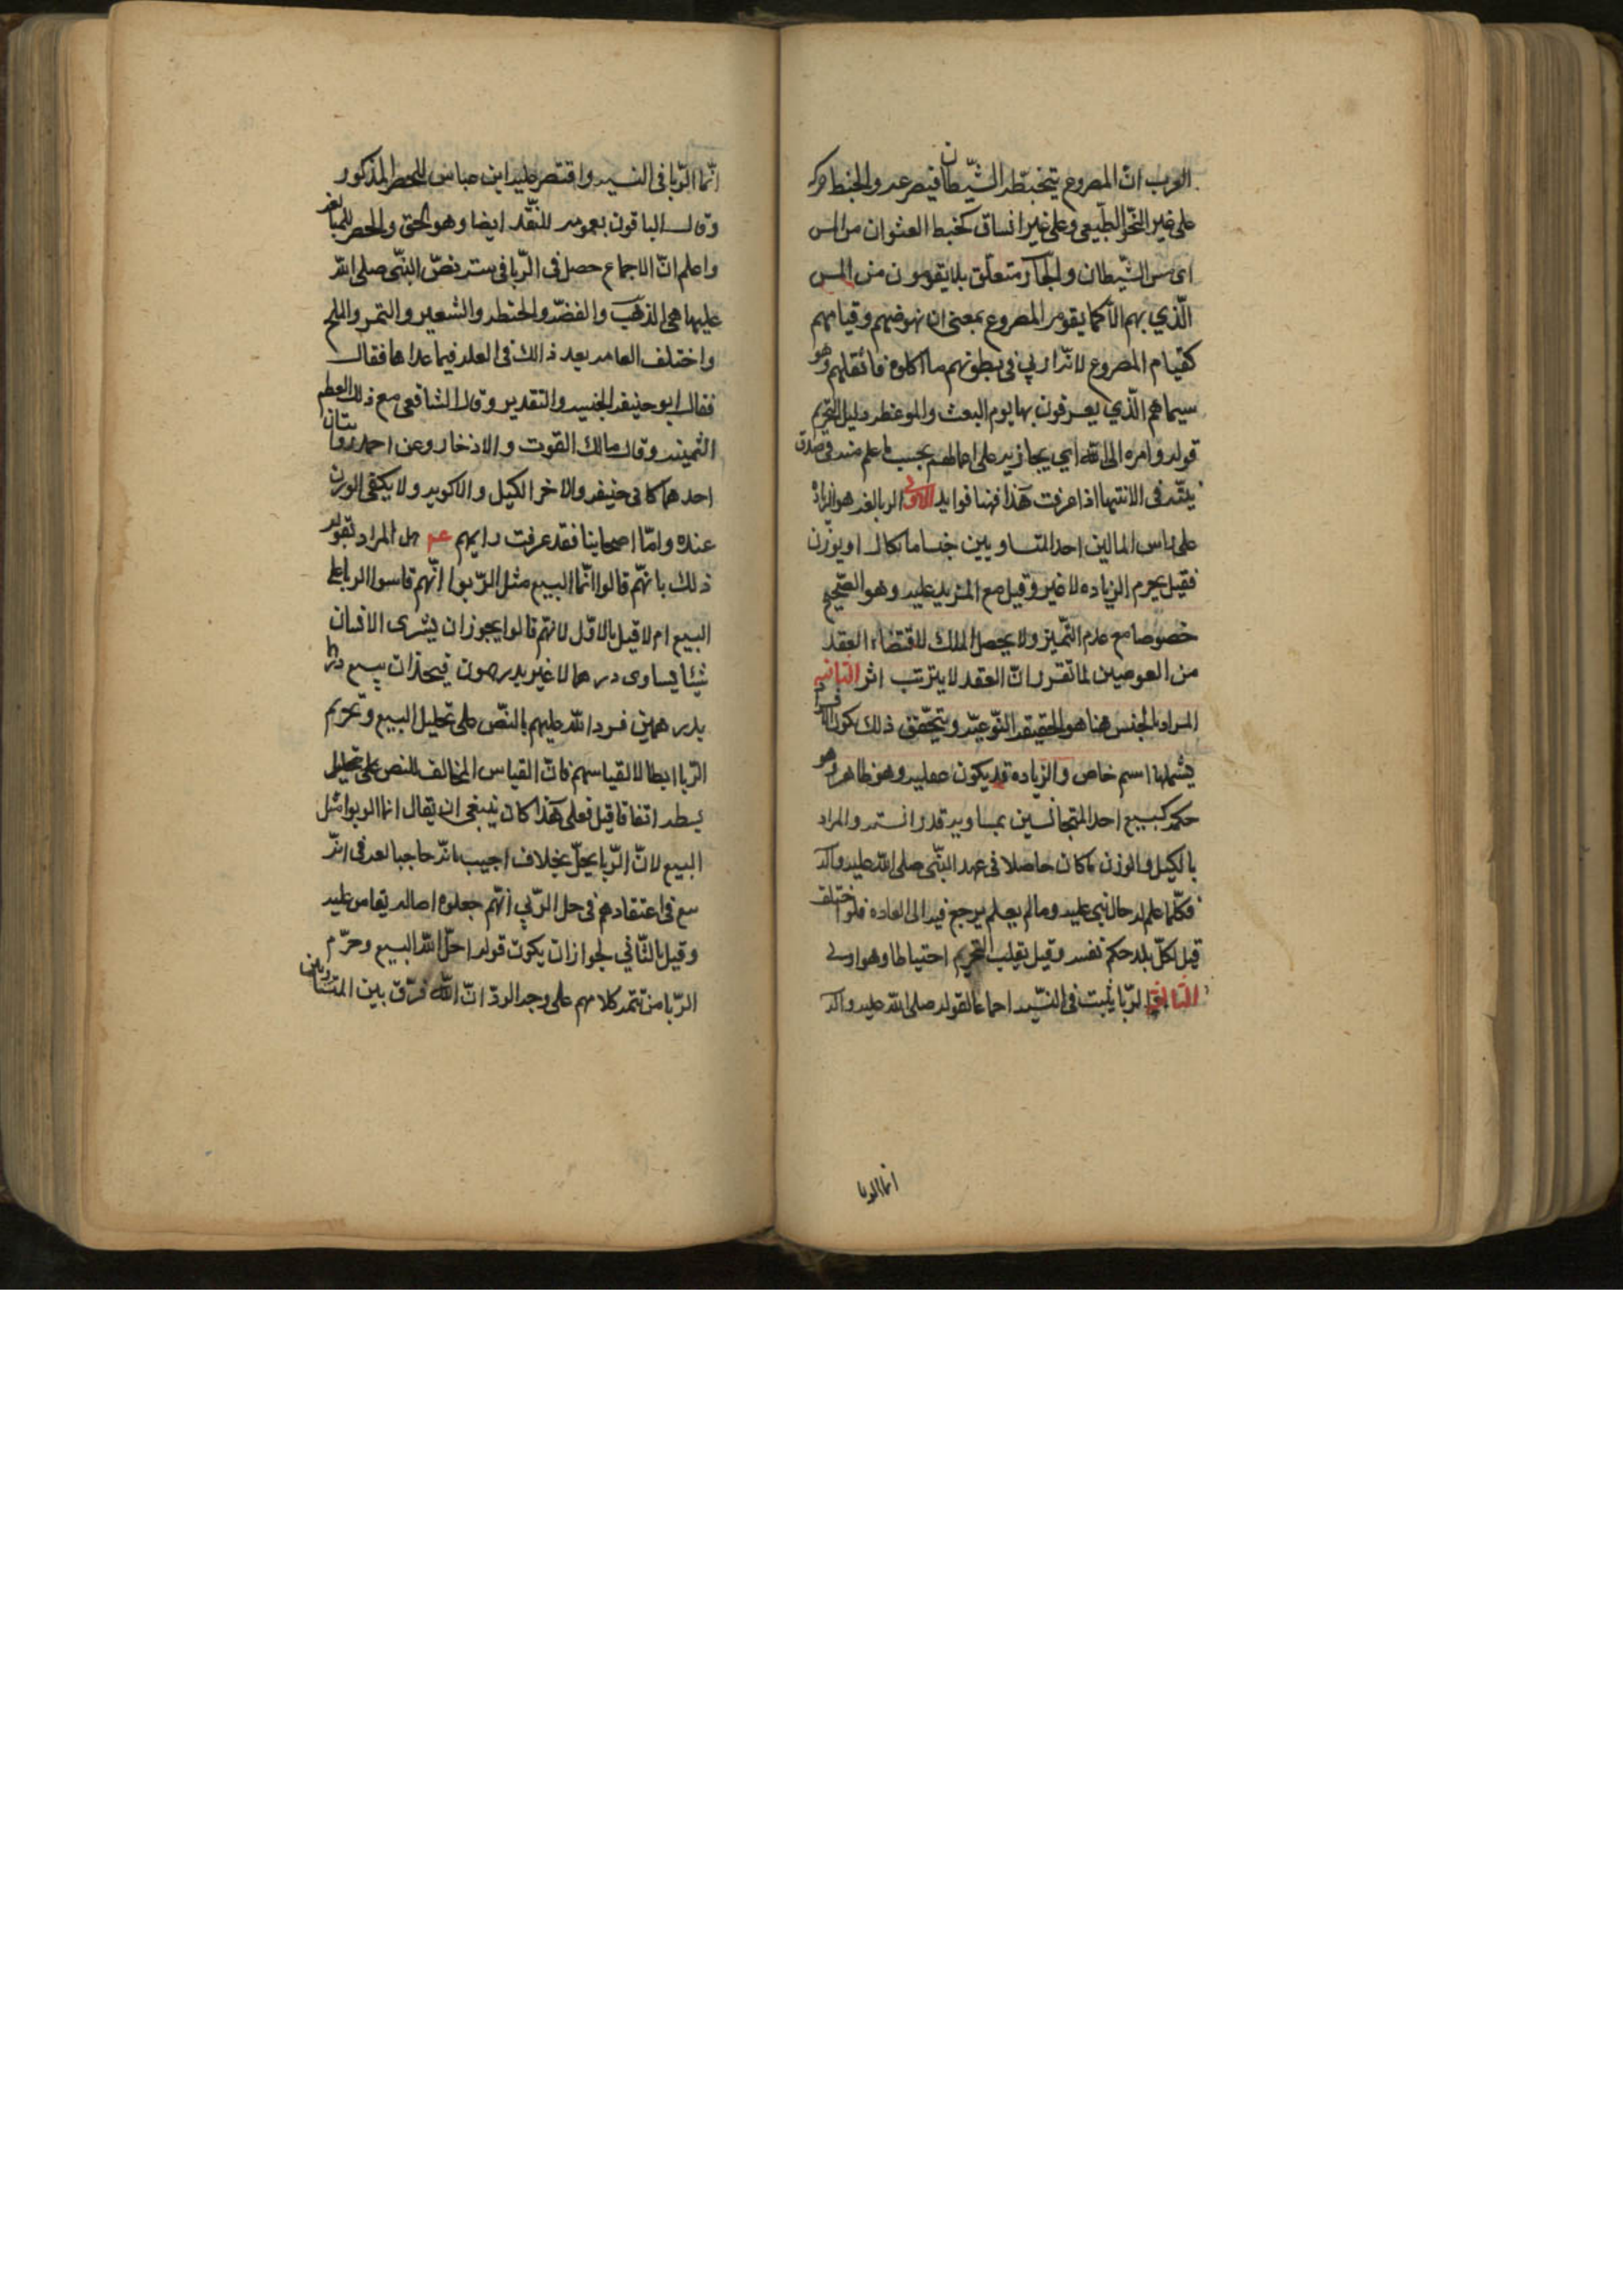 العرب انّ المصروع يتخبّطه الشّيطان فيصرعه والخبط حركه
على غير النّحو الطّبيعى وعلى غير اتساق كخبط العشوان من المس
اى مس الشّيطان والجّار متعلّق بلا يقومون من المس
الّذي بهم الّا كما يقوم المصروع بمعنى ان نهوضهم وقيامهم
كقيام المصروع لانّه اربي فى بطونهم ما اكلوه فاثقلهم وهو
سيماهم الّذي يعرفون بها يوم البعث والموعظه دليل التحريم
قوله وامره الى اللّه اي يجازيه على اعمالهم بحسب ما علم منه فى صدق
نيّته فى الانتهاا اذا عرفت هذا فهنا فوايد الاولى الربا لغه هو الزياده
على راس المالين احد المتساويين جنسا مما يكال او يوزن
فقيل يحرم الزياده لا غير وقيل مع المزيد عليه وهو الصّحيح
خصوصا مع عدم التّميّز ولا يحصل الملك لاقتضاء العقد
من العوضين لما تقرر انّ العقد لا يترتب اثر الثانيه
المراد بالجنس هنا هو الحقيقه النّوعيّه ويتحّقق ذلك بكون الافراد
يشملها اسم خاص والزياده قد يكون عينيه وهو ظاهر او هو
حكمه كبيع احد المتجانسين بمساويه قدرا نسيه والمراد
بالكيل والوزن ما كان حاصلا فى عهد النبّى صلى اللّه عليه واله
فكلّما علم له حال بني عليه وما لم يعلم يرجع فيه الى العاده فلو اختلف
قيل لكلّ بلد حكم نفسه وقيل يغلب التحريم احتياطا وهو اولى
الثالثه الرّبا يثبت فى النّسيه اجماعا لقوله صلى اللّه عليه واله
انما الربا
انّما الرّبا فى النسيه واقتصر عليه ابن عباس للحصر المذكور
وقال الباقون بعمومه للنّقد ايضا وهو الحق والحصر للمبالغه
واعلم انّ الاجماع حصل فى الرّبا فى سته نصّ النبّى صلى اللّه
عليها هى الذهب والفضّه والحنطه والشعير والتمر والملح
واختلف العامه بعد ذالك فى العله فيما عداها فقال
فقال ابو حنيفه الجنسيه والتقدير وقال الشافعى مع ذلك الطعم
الثمينه وقال مالك القوت والاذخار وعن احمد روايتان
احدهما كابى حنيفه والاخر الكيل والاكويه ولا يكفى الوزن
عنده وامّا اصحابنا فقد عرفت رايهم عم هل المراد بقوله
ذلك بانّهم قالوا انّما البيع مثل الرّبوا انّهم قاسوا الربا على
البيع ام لا قيل بالاوّل لانهم قالوا يجوز ان يشرى الانسان
شيئا يساوى درهما لا غير بدرهمين فيجوز ان يبيع درهما
بدرهمين فرد اللّه عليهم بالنصّ على تحليل البيع وتحريم
الرّبا ابطالا لقياسهم فانّ القياس المخالف للنص على تحليل
يبطله اتفاقا قيل فعلى هذا كان ينبغى ان يقال انما الربوا مثل
البيع لانّ الرّبا يحلّ بخلاف اجيب بانّه جاء مبالغه فى انّه
بيع فى اعتقادهم فى حل الرّبي انّهم جعلوه اصالا يقاس عليه
وقيل بالثّاني لجواز ان يكون قوله احلّ اللّه البيع وحرّم
الرّبا من تتمه كلامهم على وجه الردّ انّ اللّه فرّق بين المتساويين